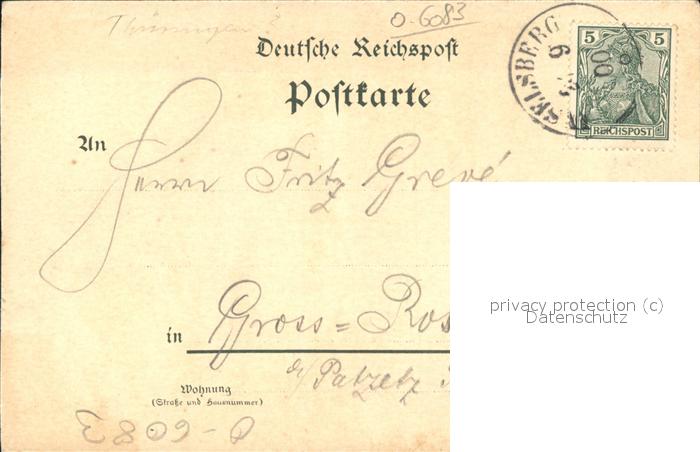 Thüringen 2
O-6083
Deutsche Reichspost
Postkarte
5 5
REICHSPOST
An
Herrn Fritz Grevé
privacy protection (c)
Datenschutz
in Gross=Ros
b/ Patzetz
Wohnung
(Straße und Hausnummer)
O-6083